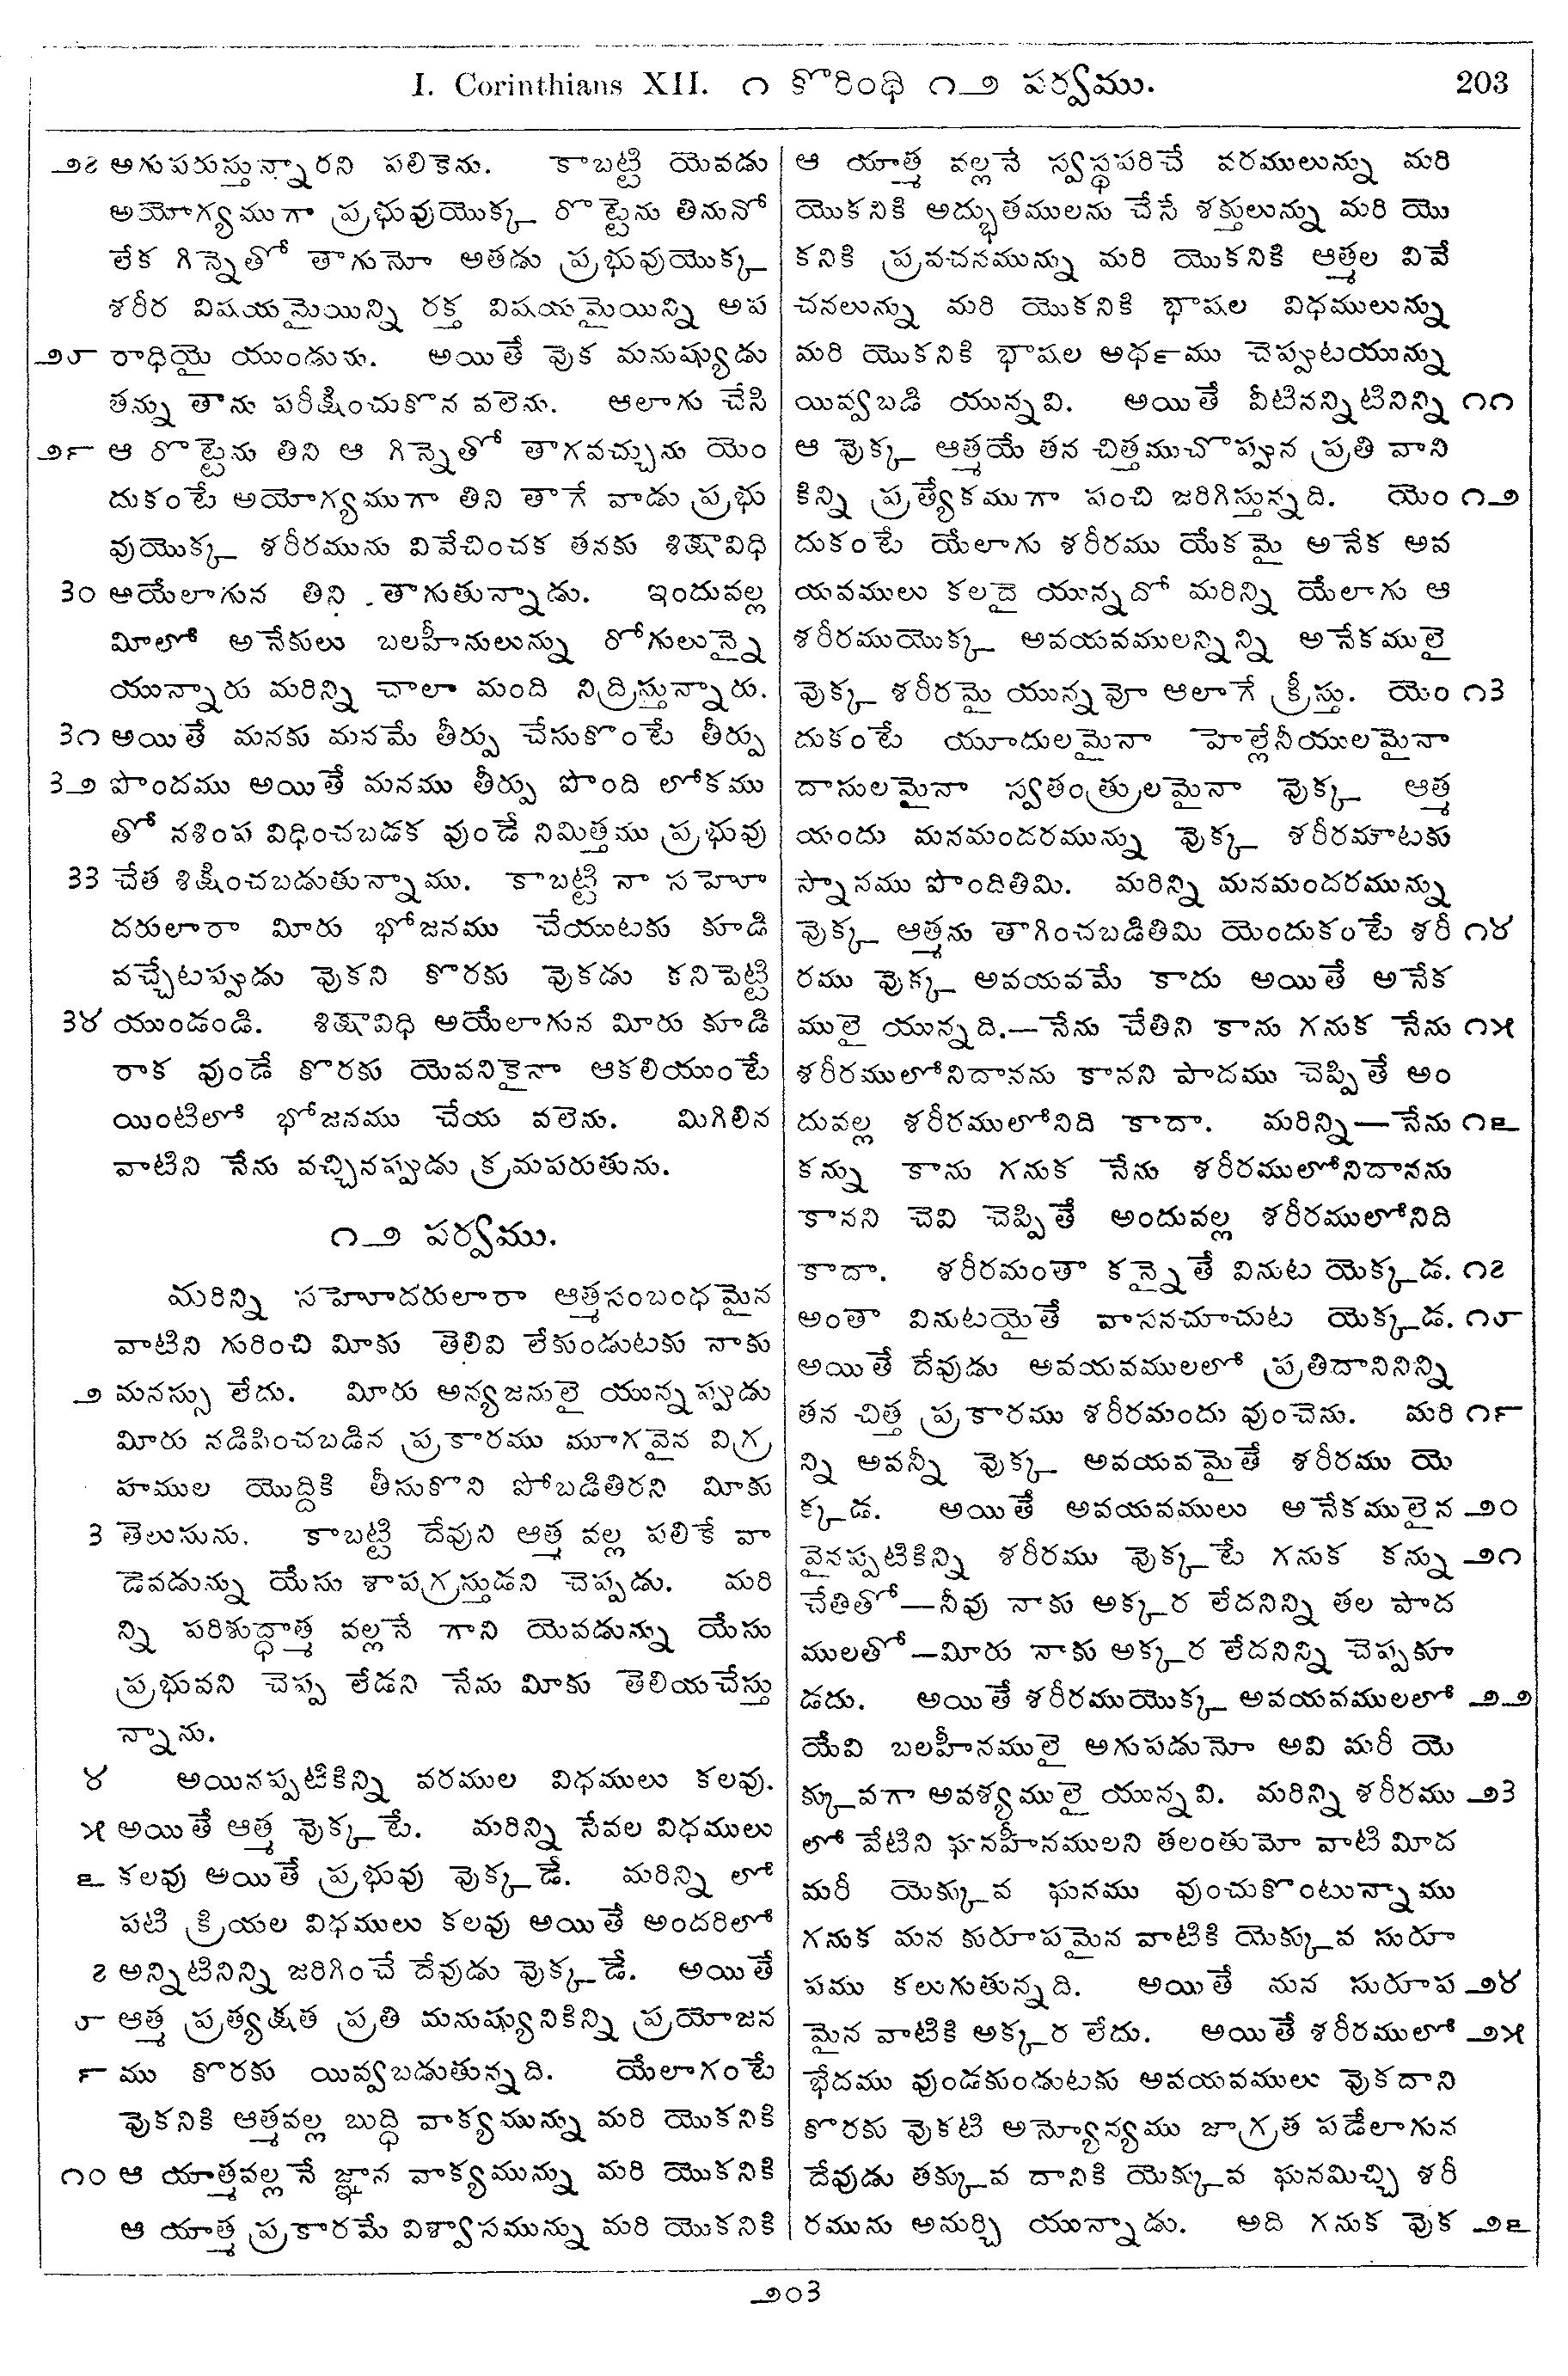 I. Corinthians XII. ౧ కొరింథి ౧౨ పర్వము. 203
౨౭ అగుపరుస్తున్నారని పలికెను. కాబట్టి యెవడు
అయోగ్యముగా ప్రభువుయొక్క రొట్టెను తినునో
లేక గిన్నెతో తాగునో అతడు ప్రభువుయొక్క
శరీర విషయమైయిన్ని రక్త విషయమైయిన్ని అప
౨౮ రాధియై యుండును. అయితే వుక మనుష్యుడు
తన్ను తాను పరీక్షించుకొన వలెను. ఆలాగు చేసి
౨౯ ఆ రొట్టెను తిని ఆ గిన్నెతో తాగవచ్చును యెం
దుకంటే అయోగ్యముగా తిని తాగే వాడు ప్రభు
వుయొక్క శరీరమును వివేచించక తనకు శిక్షావిధి
౩౦ అయేలాగున తిని తాగుతున్నాడు. ఇందువల్ల
మీలో అనేకులు బలహీనులున్ను రోగులున్నై
యున్నారు మరిన్ని చాలా మంది నిద్రిస్తున్నారు.
౩౧ అయితే మనకు మనమే తీర్పు చేసుకొంటే తీర్పు
౩౨ పొందము అయితే మనము తీర్పు పొంది లోకము
తో నశింప విధించబడక వుండే నిమిత్తము ప్రభువు
౩౩ చేత శిక్షించబడుతున్నాము. కాబట్టి నా సహో
దరులారా మీరు భోజనము చేయుటకు కూడి
వచ్చేటప్పుడు వుకని కొరకు వుకడు కనిపెట్టి
౩౪ యుండండి. శిక్షావిధి అయేలాగున మీరు కూడి
రాక వుండే కొరకు యెవనికైనా ఆకలియుంటే
యింటిలో భోజనము చేయ వలెను. మిగిలిన
వాటిని నేను వచ్చినప్పుడు క్రమపరుతును.
౧౨ పర్వము.
మరిన్ని సహోదరులారా ఆత్మసంబంధమైన
వాటిని గురించి మీకు తెలివి లేకుండుటకు నాకు
౨ మనస్సు లేదు. మీరు అన్యజనులై యున్నప్పుడు
మీరు నడిపించబడిన ప్రకారము మూగవైన విగ్ర
హముల యొద్దికి తీసుకొని పోబడితిరని మీకు
౩ తెలుసును. కాబట్టి దేవుని ఆత్మ వల్ల పలికే వా
డెవడున్ను యేసు శాపగ్రస్తుడని చెప్పడు. మరి
న్ని పరిశుద్ధాత్మ వల్లనే గాని యెవడున్ను యేసు
ప్రభువని చెప్ప లేడని నేను మీకు తెలియచేస్తు
న్నాను.
౪ అయినప్పటికిన్ని వరముల విధములు కలవు.
౫ అయితే ఆత్మ వుక్కటే. మరిన్ని సేవల విధములు
౬ కలవు అయితే ప్రభువు వుక్కడే. మరిన్ని లో
పటి క్రియల విధములు కలవు అయితే అందరిలో
౭ అన్నిటినిన్ని జరిగించే దేవుడు వుక్కడే. అయితే
౮ ఆత్మ ప్రత్యక్షత ప్రతి మనుష్యునికిన్ని ప్రయోజన
౯ ము కొరకు యివ్వబడుతున్నది. యేలాగంటే
వుకనికి ఆత్మవల్ల బుద్ధి వాక్యమున్ను మరి యొకనికి
౧౦ ఆ యాత్మవల్లనే జ్ఞాన వాక్యమున్ను మరి యొకనికి
ఆ యాత్మ ప్రకారమే విశ్వాసమున్ను మరి యొకనికి
ఆ యాత్మ వల్లనే స్వస్థపరిచే వరములున్ను మరి
యొకనికి అద్భుతములను చేసే శక్తులున్ను మరి యొ
కనికి ప్రవచనమున్ను మరి యొకనికి ఆత్మల వివే
చనలున్ను మరి యొకనికి భాషల విధములున్ను
మరి యొకనికి భాషల అథ౯ము చెప్పుటయున్ను
యివ్వబడి యున్నవి. అయితే వీటినన్నిటినిన్ని ౧౧
ఆ వుక్క ఆత్మయే తన చిత్తముచొప్పున ప్రతి వాని
కిన్ని ప్రత్యేకముగా పంచి జరిగిస్తున్నది. యెం ౧౨
దుకంటే యేలాగు శరీరము యేకమై అనేక అవ
యవములు కలదై యున్నదో మరిన్ని యేలాగు ఆ
శరీరముయొక్క అవయవములన్నిన్ని అనేకములై
వుక్క శరీరమై యున్నవో ఆలాగే క్రీస్తు. యెం ౧౩
దుకంటే యూదులమైనా హెల్లేనీయులమైనా
దాసులమైనా స్వతంత్రులమైనా వుక్క ఆత్మ
యందు మనమందరమున్ను వుక్క శరీరమౌటకు
స్నానము పొందితిమి. మరిన్ని మనమందరమున్ను
వుక్క ఆత్మను తాగించబడితిమి యెందుకంటే శరీ ౧౪
రము వుక్క అవయవమే కాదు అయితే అనేక
ములై యున్నది.—నేను చేతిని కాను గనుక నేను ౧౫
శరీరములోనిదానను కానని పాదము చెప్పితే అం
దువల్ల శరీరములోనిది కాదా. మరిన్ని—నేను ౧౬
కన్ను కాను గనుక నేను శరీరములోనిదానను
కానని చెవి చెప్పితే అందువల్ల శరీరములోనిది
కాదా. శరీరమంతా కన్నైతే వినుట యెక్కడ. ౧౭
అంతా వినుటయైతే వాసనచూచుట యెక్కడ. ౧౮
అయితే దేవుడు అవయవములలో ప్రతిదానినిన్ని
తన చిత్త ప్రకారము శరీరమందు వుంచెను. మరి ౧౯
న్ని అవన్నీ వుక్క అవయవమైతే శరీరము యె
క్కడ. అయితే అవయవములు అనేకములైన ౨౦
వైనప్పటికిన్ని శరీరము వుక్కటే గనుక కన్ను ౨౧
చేతితో—నీవు నాకు అక్కర లేదనిన్ని తల పాద
ములతో—మీరు నాకు అక్కర లేదనిన్ని చెప్పకూ
డదు. అయితే శరీరముయొక్క అవయవములలో ౨౨
యేవి బలహీనములై అగుపడునో అవి మరీ యె
క్కువగా అవశ్యములై యున్నవి. మరిన్ని శరీరము ౨౩
లో వేటిని ఘనహీనములని తలంతుమో వాటి మీద
మరీ యెక్కువ ఘనము వుంచుకొంటున్నాము
గనుక మన కురూపమైన వాటికి యెక్కువ సురూ
పము కలుగుతున్నది. అయితే మన సురూప ౨౪
మైన వాటికి అక్కర లేదు. అయితే శరీరములో ౨౫
భేదము వుండకుండుటకు అవయవములు వుకదాని
కొరకు వుకటి అన్యోన్యము జాగ్రత పడేలాగున
దేవుడు తక్కువ దానికి యెక్కువ ఘనమిచ్చి శరీ
రమును అమర్చి యున్నాడు. అది గనుక వుక ౨౬
౨౦౩